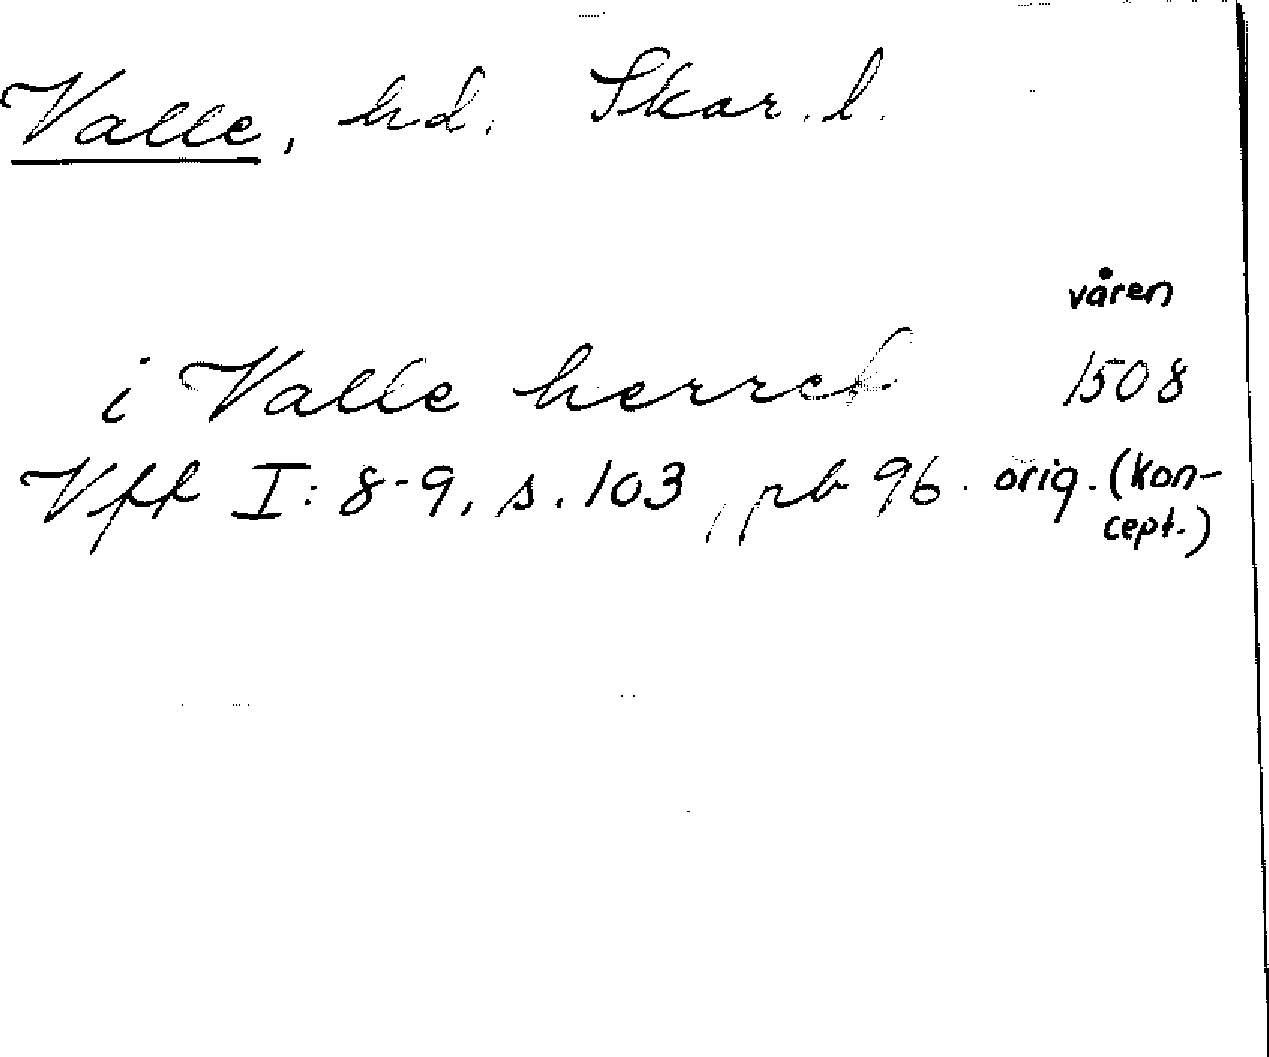 Valle, hd. Skar. l.
våren
i Valle herreb 1508
Vff I: 8-9, s. 103, pb 96. orig. (kon-
cept.)